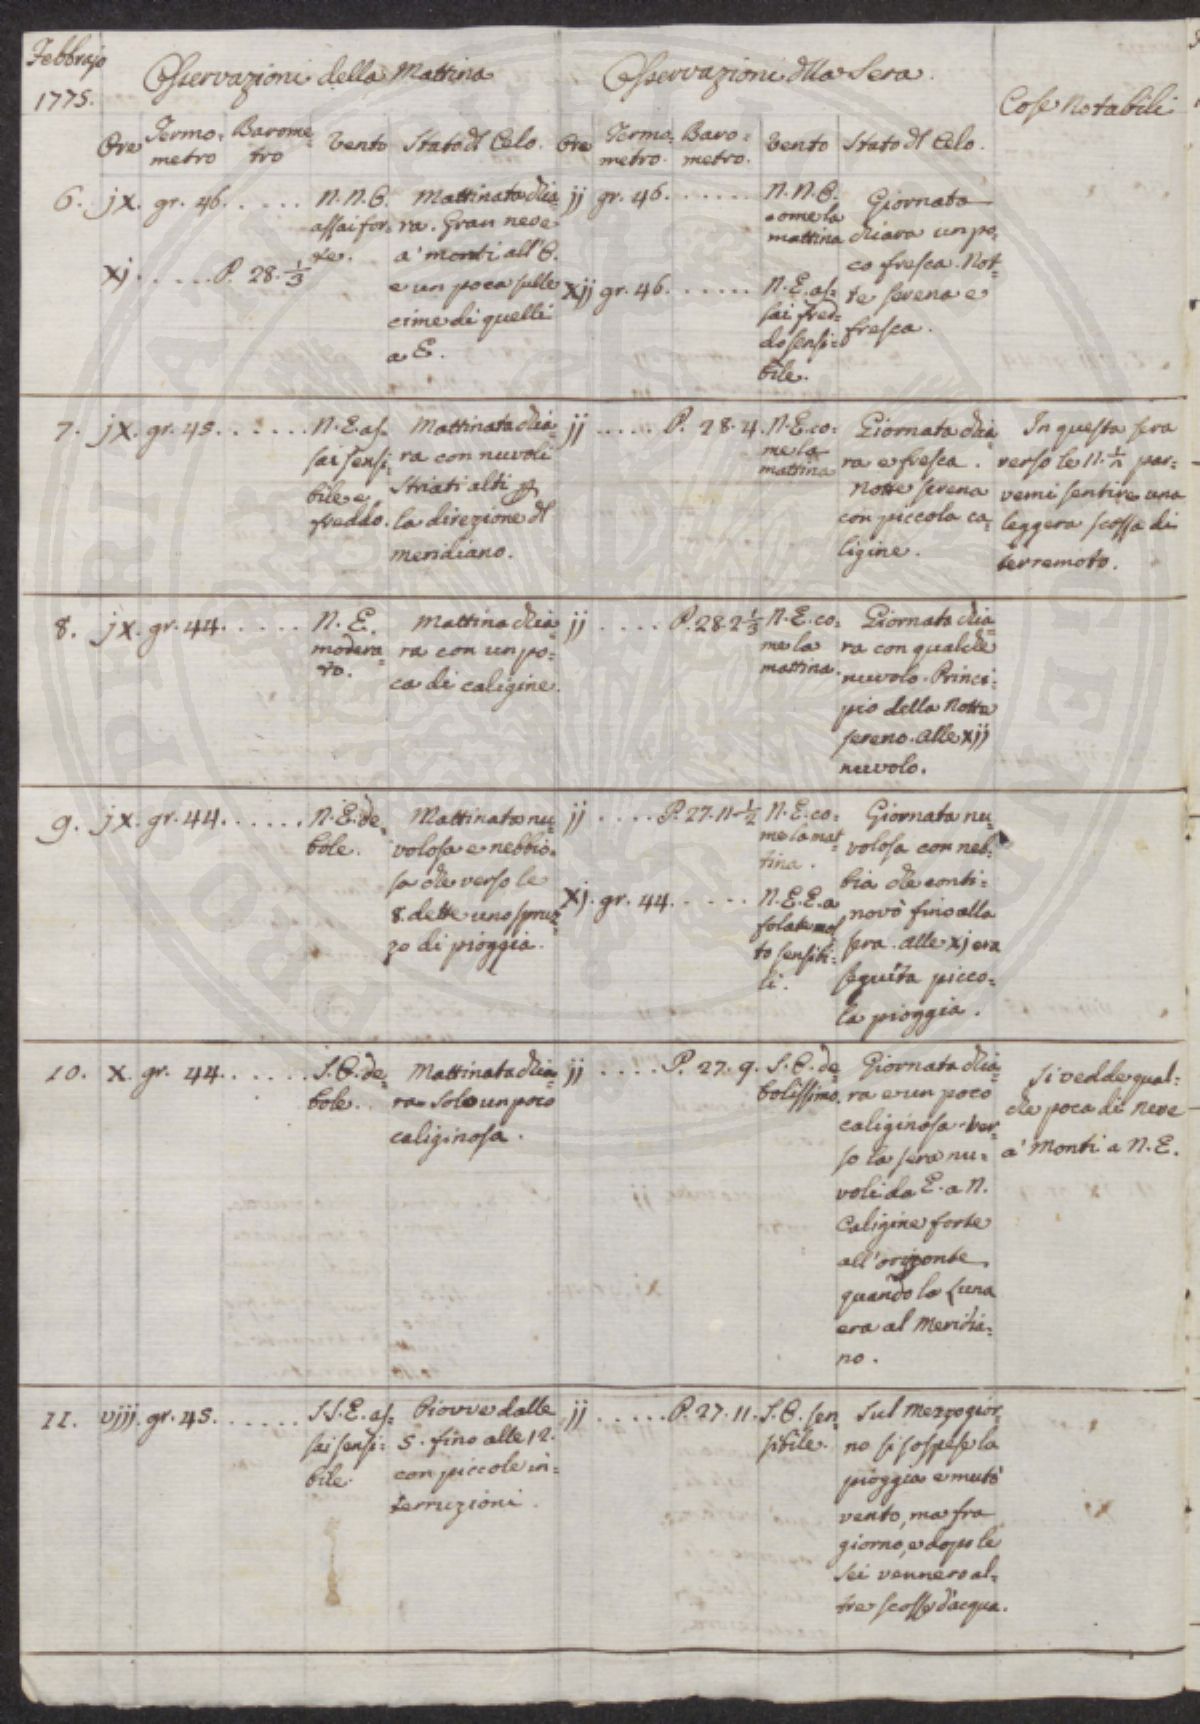 Febbrajo
1775.
Osservazioni della Mattina
Osservazioni dlla Sera.
Cose Notabili
Ore
Termo=
metro
Barome
tro
Vento
Stato dl Celo.
Ore
Termo=
metro.
Baro=
metro.
Vento
Stato dl Celo.
6. jx. gr. 46. . . . .
N. N. E.
assai for=
te.
Mattinata chia
ra. Gran neve
a' monti all' E.
e un poca sulle
cime di quelli
a E.
xj. . . . . . P. 28. 1/3
jj gr. 46. . . . . .
N. N. E.
come la
mattina
Giornata
chiara un po=
co fresca. Not=
te serena e
fresca.
xjj gr. 46. . . . . .
N. E. as=
sai fred=
do sensi=
bile.
7. jx. gr. 45. . . . . .
N. E. as=
sai sensi=
bile e
freddo.
Mattinata chia=
ra con nuvoli
striati alti
la direzione dl
meridiano.
jj . . . . . P. 28. 4.
N. E. co=
me la
mattina
Giornata chia
ra e fresca.
Notte serena
con piccola ca=
ligine.
In questa sera
verso le 11. par=
vemi sentire una
leggera scossa di
terremoto.
8. jx. gr. 44. . . . .
N. E.
modera=
to.
Mattina chia
ra con un po=
ca di caligine.
jj . . . . P. 28. 2 1/3
N. E. co=
me la
mattina.
Giornata chia=
ra con qualche
nuvolo. Princi=
pio della Notte
sereno. alle xjj
nuvolo.
9. jx. gr. 44. . . . . .
N. E. de=
bole.
Mattinata nu=
volosa e nebbio=
sa che verso le
8. dette uno spruz
zo di pioggia.
jj . . . . P. 27. 11 1/2
N. E. co=
me la mat
tina.
Giornata nu=
volosa con neb=
bia che conti=
novò fino alla
sera. alle xj era
seguita picco=
la pioggia.
xj. gr. 44. . . . . .
N. E. E. a
folate mol
to sensibi=
li.
10. x. gr. 44. . . . . .
S. E. de=
bole.
Mattinata chia=
ra solo un poco
caliginosa.
jj . . . . P. 27. 9.
S. E. de=
bolissimo.
Giornata chia=
ra e un poco
caliginosa. ver=
so la sera nu=
voli da E. a N.
Caligine forte
all' orizonte
quando la Luna
era al Meridia=
no.
Si vedde qual=
che poca di neve
a' Monti a N. E.
11. viij. gr. 45. . . . . .
S. S. E. as=
sai sensi=
bile.
Piovve dalle
5. fino alle 12.
con piccole in=
terruzioni.
jj . . . . . P. 27. 11.
S. E. sen=
sibile.
Sul mezzogior=
no si sospese la
pioggia e mutò
vento, ma fra
giorno, e dopo le
sei vennero al=
tre scosse d'acqua.